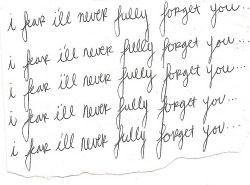 i fear i'll never fully forget you...
i fear i'll never fully forget you...
i fear i'll never fully forget you...
i fear i'll never fully forget you...
i fear i'll never fully forget you...